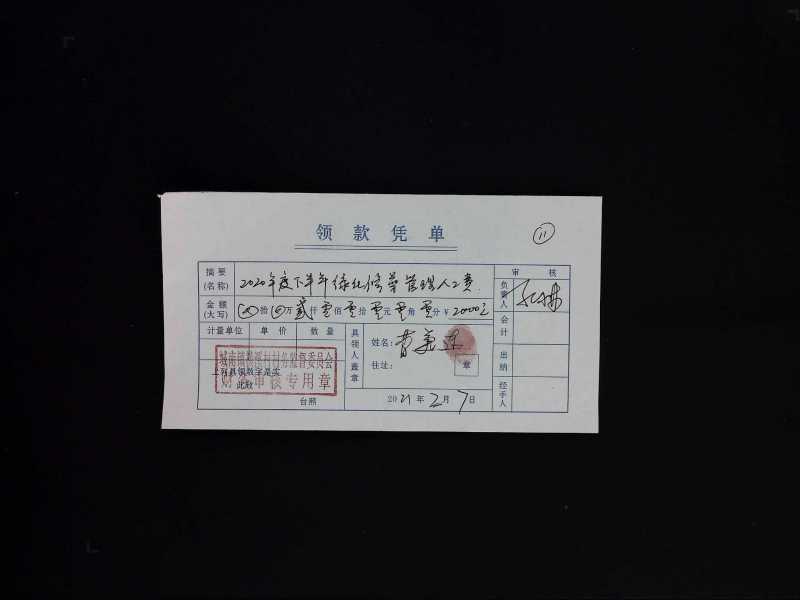 领款凭单
11
摘要(名称) 2020年度下半年绿化修剪管理人工费 审核
金额(大写) 拾 万贰仟零佰零拾零元零角零分 ¥ 2000元 负责人
计量单位 单价 数量 具领人盖章 姓名: 曹 连 会计
住址: 章
城南镇 村村务监督委员会
上列具领数字是实 出纳
财 审核专用章
此致
台照 2021年2月7日 经手人